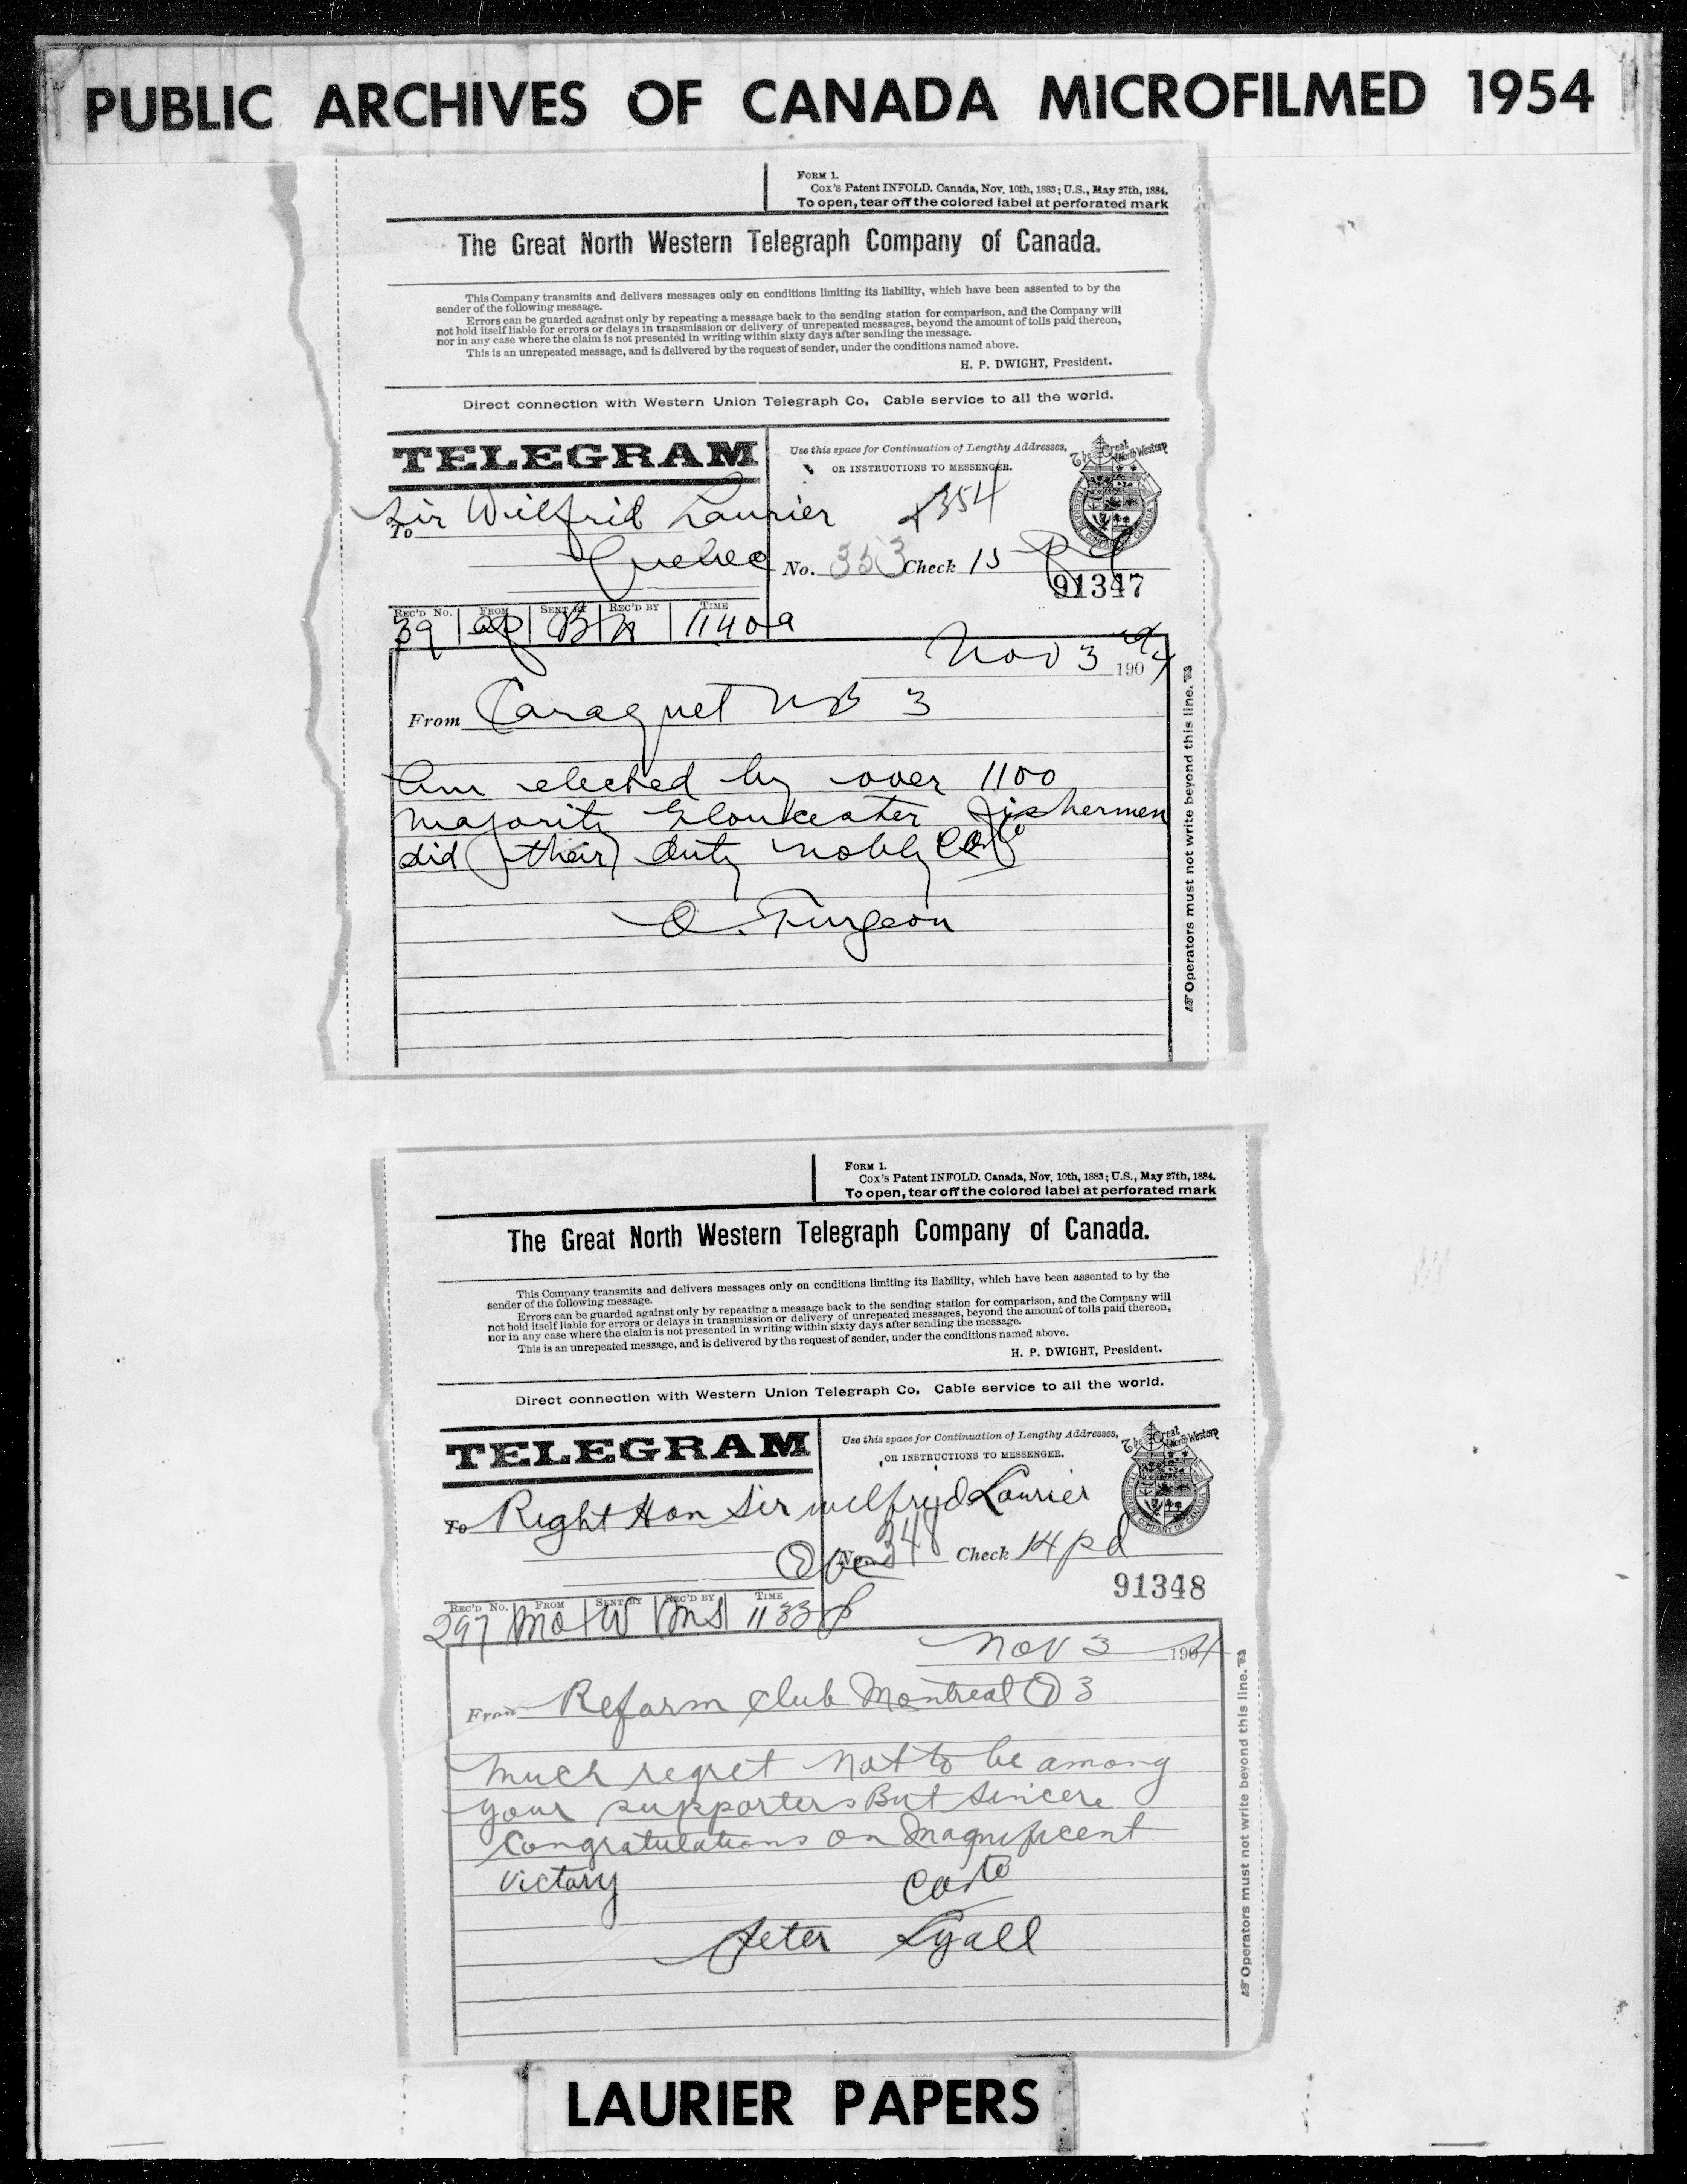 PUBLIC ARCHIVES OF CANADA MICROFILMED 1954
FORM 1.
Cox's Patent INFOLD. Canada, Nov. 10th, 1883; U.S., May 27th, 1884.
To open, tear off the colored label at perforated mark
The Great North Western Telegraph Company of Canada.
This Company transmits and delivers messages only on conditions limiting its liability, which have been assented to by the
sender of the following message.
Errors can be guarded against only by repeating a message back to the sending station for comparison, and the Company will
not hold itself liable for errors or delays in transmission or delivery of unrepeated messages, beyond the amount of tolls paid thereon,
nor in any case where the claim is not presented in writing within sixty days after sending the message.
This is an unrepeated message, and is delivered by the request of sender, under the conditions named above.
H. P. DWIGHT, President.
Direct connection with Western Union Telegraph Co. Cable service to all the world.
TELEGRAM
Use this space for Continuation of Lengthy Addresses,
OR INSTRUCTIONS TO MESSENGER.
The Great North Western
TELEGRAPH COMPANY OF CANADA
354
To Sir Wilfrid Laurier
Quebec
No. 353 Check 15
91347
REC'D No. FROM SENT BY REC'D BY TIME
39 1140a
Nov 3 1904
From Caraquet NB 3
Am elected by over 1100
majority Gloucester fishermen
did their duty nobly
O. Turgeon
Operators must not write beyond this line.
FORM 1.
Cox's Patent INFOLD. Canada, Nov. 10th, 1883; U.S., May 27th, 1884.
To open, tear off the colored label at perforated mark
The Great North Western Telegraph Company of Canada.
This Company transmits and delivers messages only on conditions limiting its liability, which have been assented to by the
sender of the following message.
Errors can be guarded against only by repeating a message back to the sending station for comparison, and the Company will
not hold itself liable for errors or delays in transmission or delivery of unrepeated messages, beyond the amount of tolls paid thereon,
nor in any case where the claim is not presented in writing within sixty days after sending the message.
This is an unrepeated message, and is delivered by the request of sender, under the conditions named above.
H. P. DWIGHT, President.
Direct connection with Western Union Telegraph Co. Cable service to all the world.
TELEGRAM
Use this space for Continuation of Lengthy Addresses,
OR INSTRUCTIONS TO MESSENGER.
The Great North Western
TELEGRAPH COMPANY OF CANADA
To Right Hon Sir Wilfrid Laurier
Que No. 348 Check 14 pd
91348
REC'D No. FROM SENT BY REC'D BY TIME
297 Mo W Ms 1133p
Nov 3 1904
From Reform Club Montreal Q 3
Much regret not to be among
your supporters But Sincere
Congratulations on Magnificent
Victory
Peter Lyall
Operators must not write beyond this line.
LAURIER PAPERS